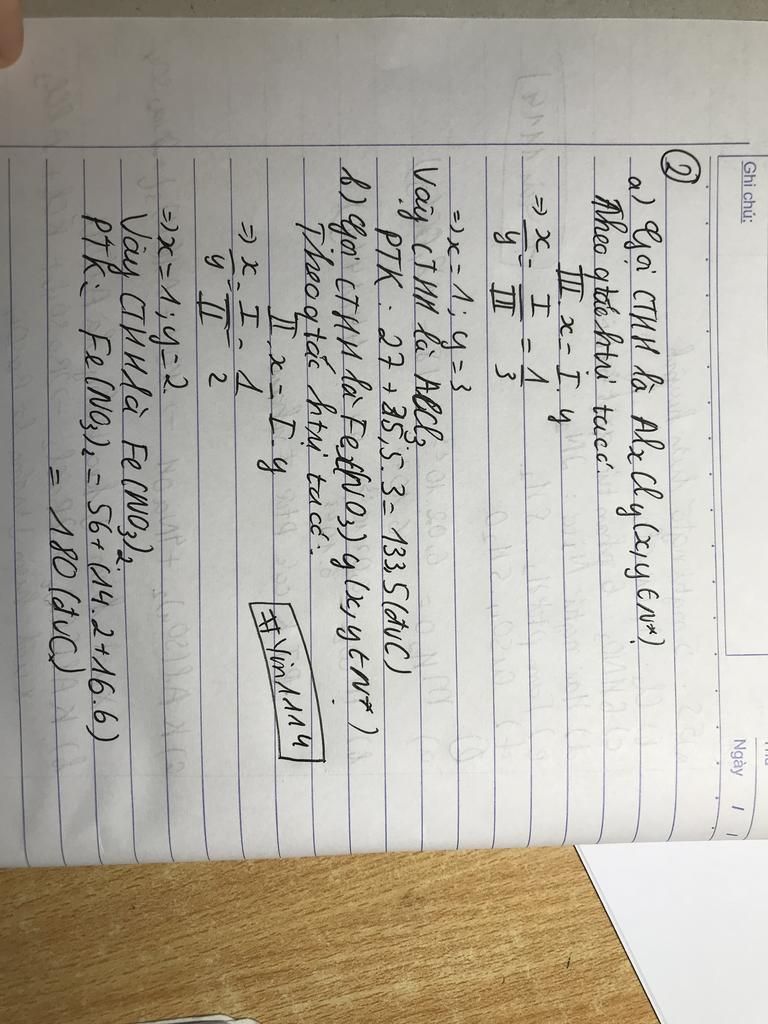 Ghi chú:
Ngày / /
②
a) Gọi CTHH là AlxCly (x,y ∈ N*)
Theo qtắc htrị ta có:
III x = I.y
=> x/y = I/III = 1/3
=> x=1; y=3
Vậy CTHH là AlCl3
PTK: 27 + 35,5.3 = 133,5 (đvC)
b) Gọi CTHH là Fex(NO3)y (x,y ∈ N*)
Theo qtắc htrị ta có:
II.x = I.y
=> x/y = I/II = 1/2
#Yin1114
=> x=1; y=2
Vậy CTHH là Fe(NO3)2.
PTK: Fe(NO3)2 = 56 + (14.2+16.6)
= 180 (đvC)